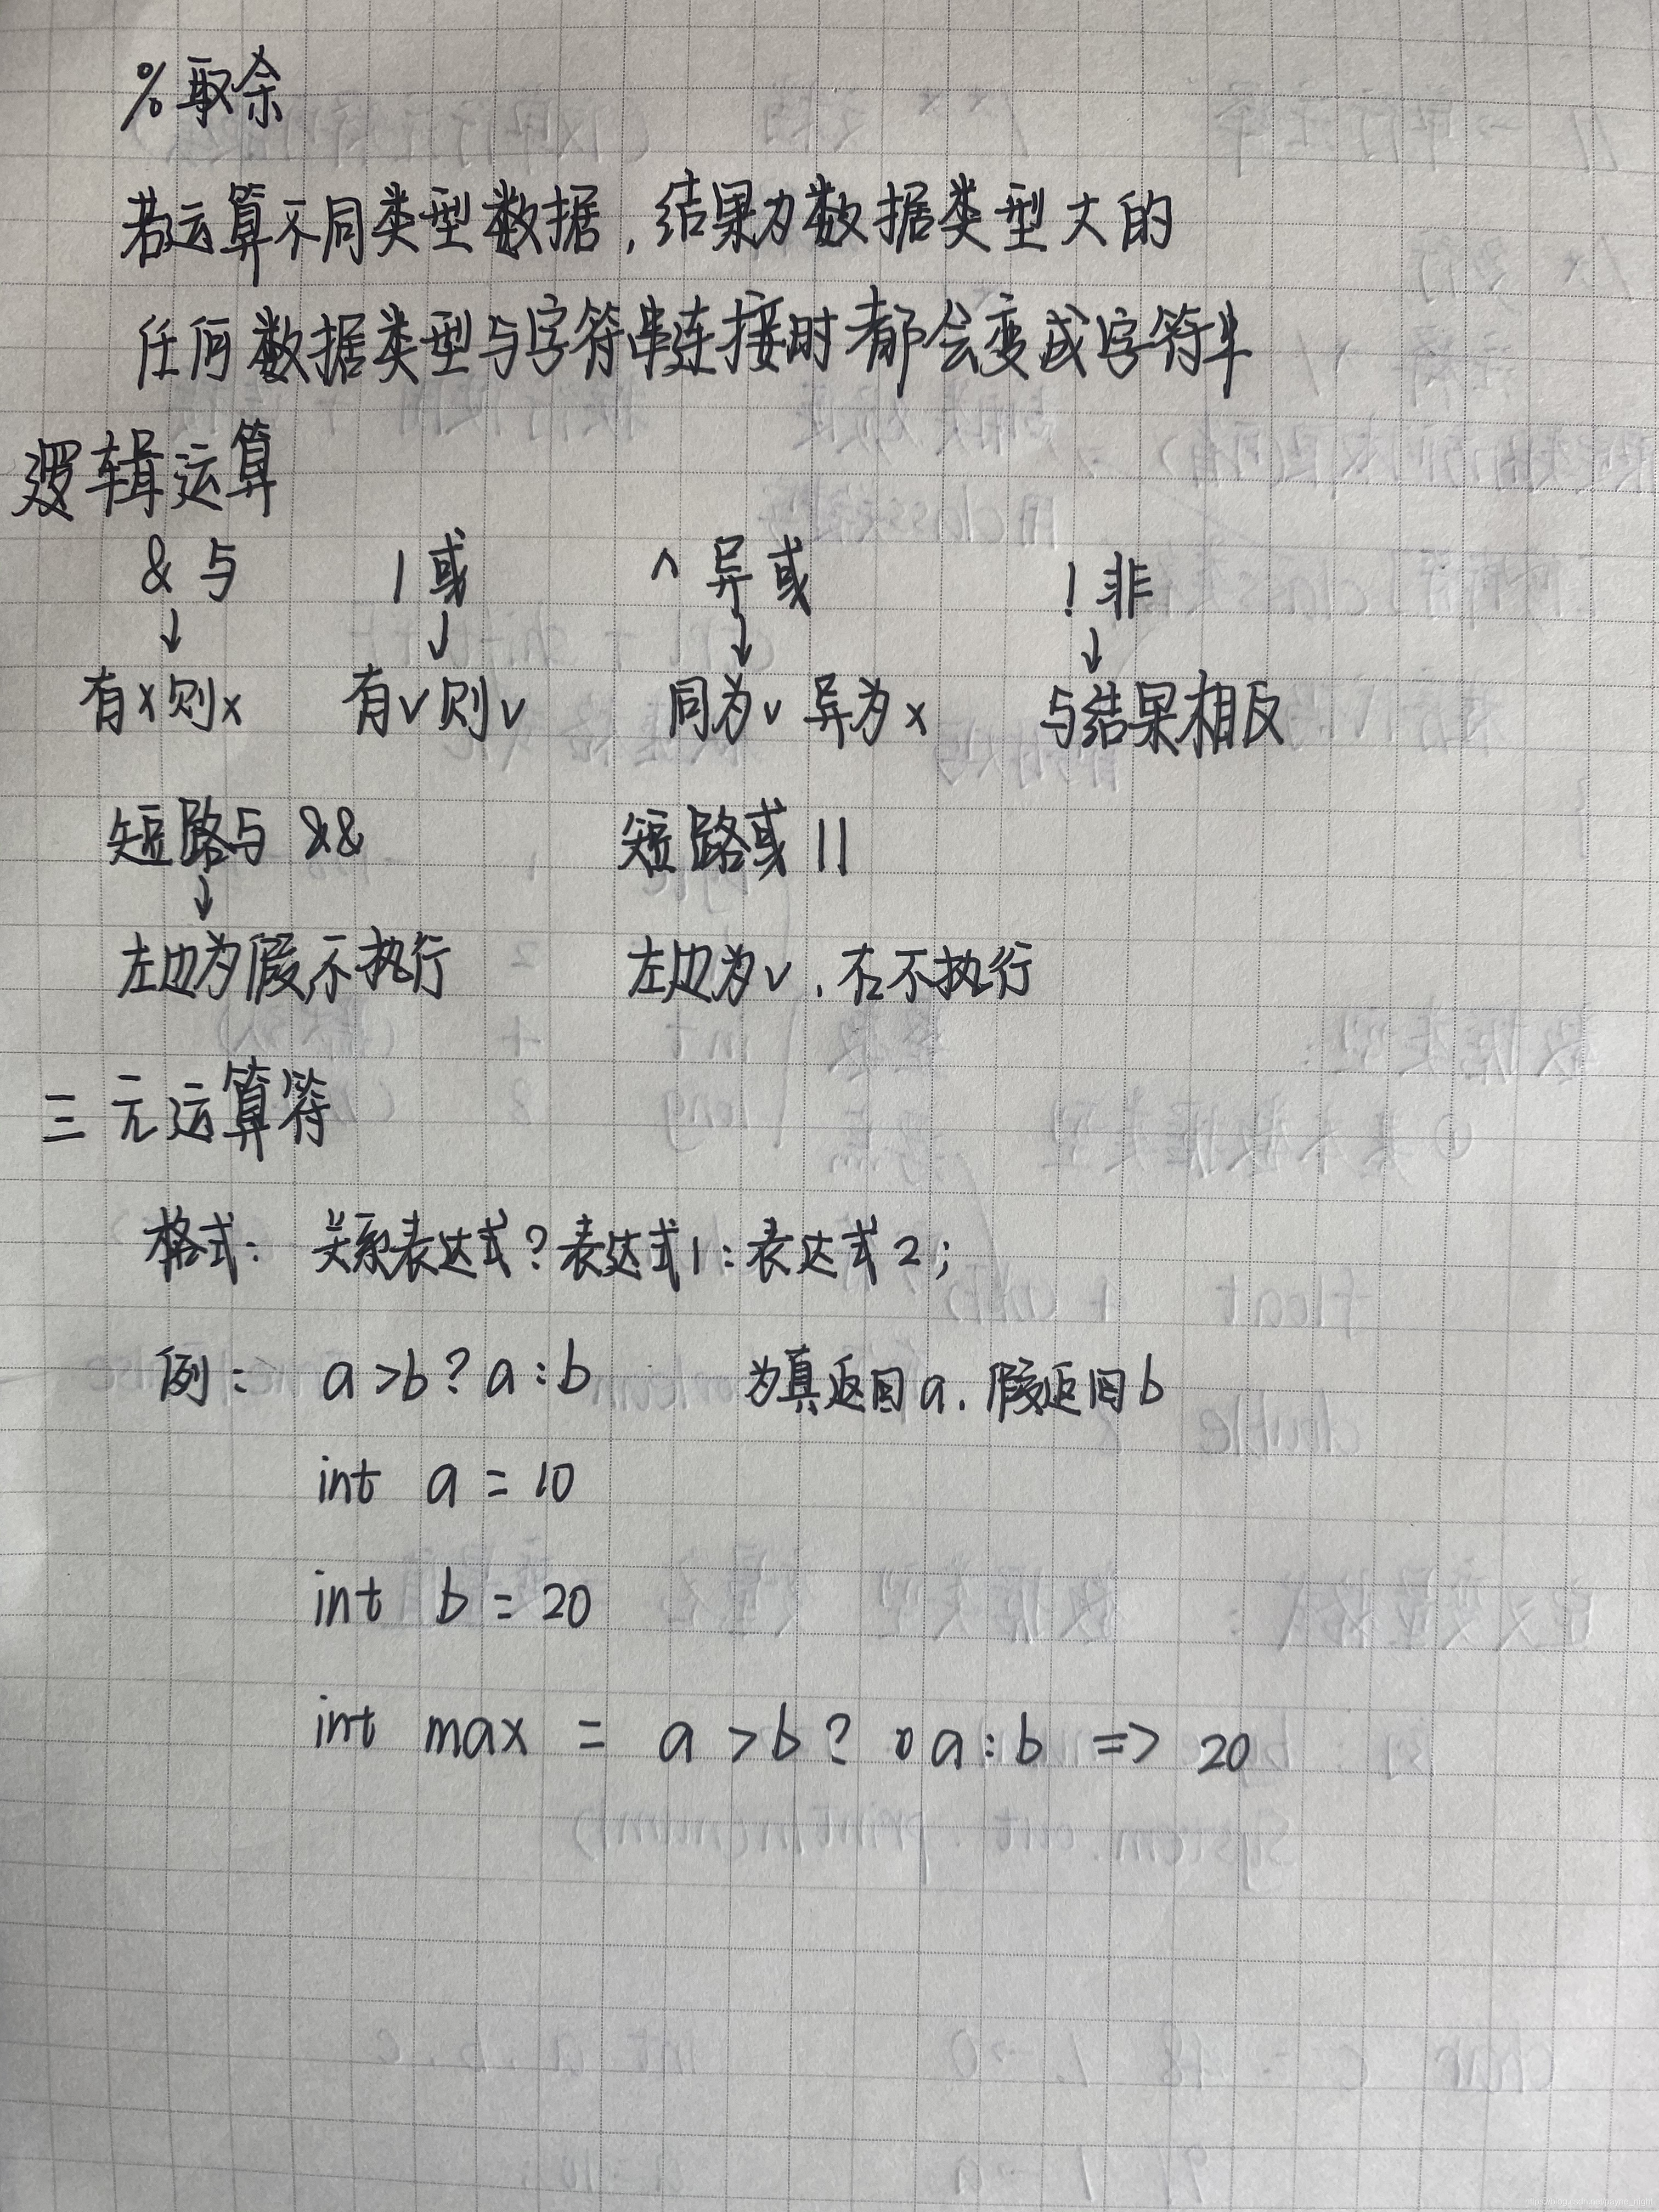 % 取余
若运算不同类型数据，结果为数据类型大的
任何数据类型与字符串连接时都会变成字符串
逻辑运算
& 与 | 或 ^ 异或 ! 非
↓ ↓ ↓ ↓
有x则x 有√则√ 同为√ 异为x 与结果相反
短路与 && 短路或 ||
↓
左边为假不执行 左边为√，右不执行
三元运算符
格式： 关系表达式？表达式1：表达式2；
例： a>b? a:b 为真返回a. 假返回b
int a = 10
int b = 20
int max = a > b ? a : b => 20